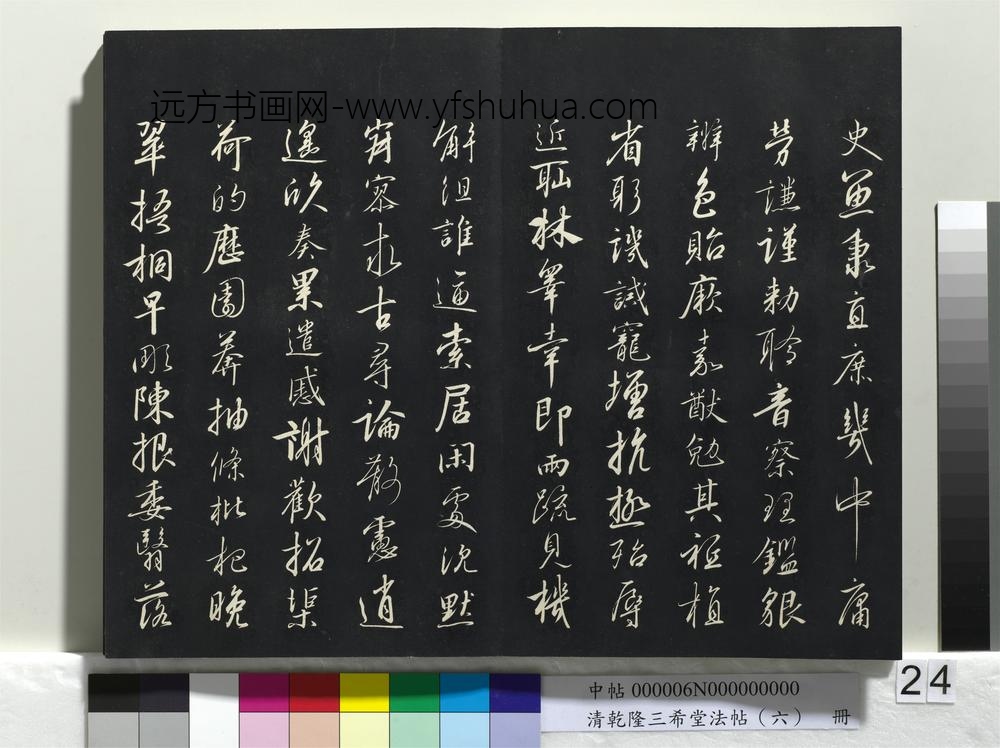 远方书画网-www.yfshuhua.com
史魚秉直庶幾中庸
勞謙謹勅聆音察理鑑貌
辨色貽厥嘉猷勉其祗植
省躬譏誡寵增抗極殆辱
近耻林睪幸即兩疏見機
解組誰逼索居閑處沈默
寂寥求古尋論散慮逍
遙欣奏累遣慼謝歡招渠
荷的歷園莽抽條枇杷晚
翠梧桐早彫陳根委翳落
中帖 000006N000000000
清乾隆三希堂法帖（六） 冊
24